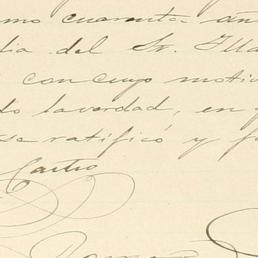 mo cuarenta añ
dia del Sr. Illa
con cuyo motiv
do la verdad, en
se ratificó y f
Castro